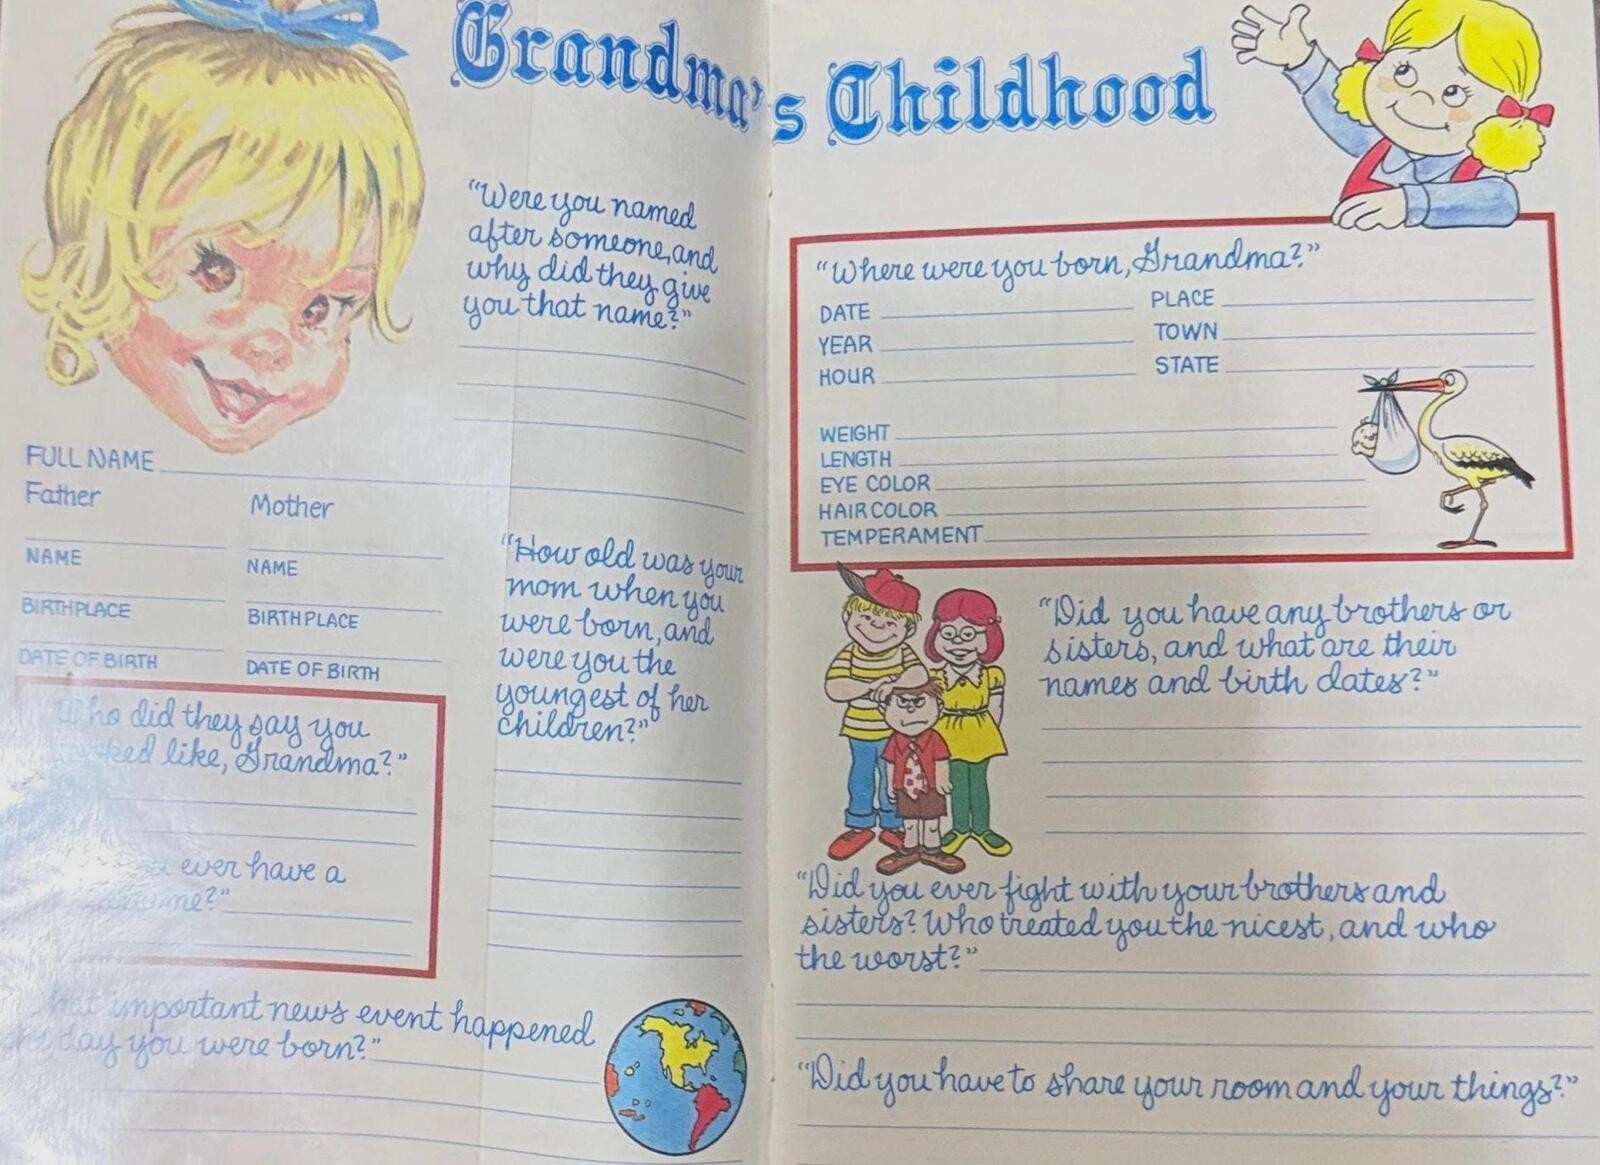 Grandma's Childhood
"Were you named
after someone, and
why did they give
you that name?"
FULL NAME
Father
Mother
NAME
NAME
BIRTHPLACE
BIRTHPLACE
DATE OF BIRTH
DATE OF BIRTH
Who did they say you
looked like, Grandma?"
ever have a
"How old was your
mom when you
were born, and
were you the
youngest of her
children?"
What important news event happened
the day you were born?"
"Where were you born, Grandma?"
DATE
PLACE
YEAR
TOWN
HOUR
STATE
WEIGHT
LENGTH
EYE COLOR
HAIR COLOR
TEMPERAMENT
"Did you have any brothers or
sisters, and what are their
names and birth dates?"
"Did you ever fight with your brothers and
sisters? Who treated you the nicest, and who
the worst?"
"Did you have to share your room and your things?"